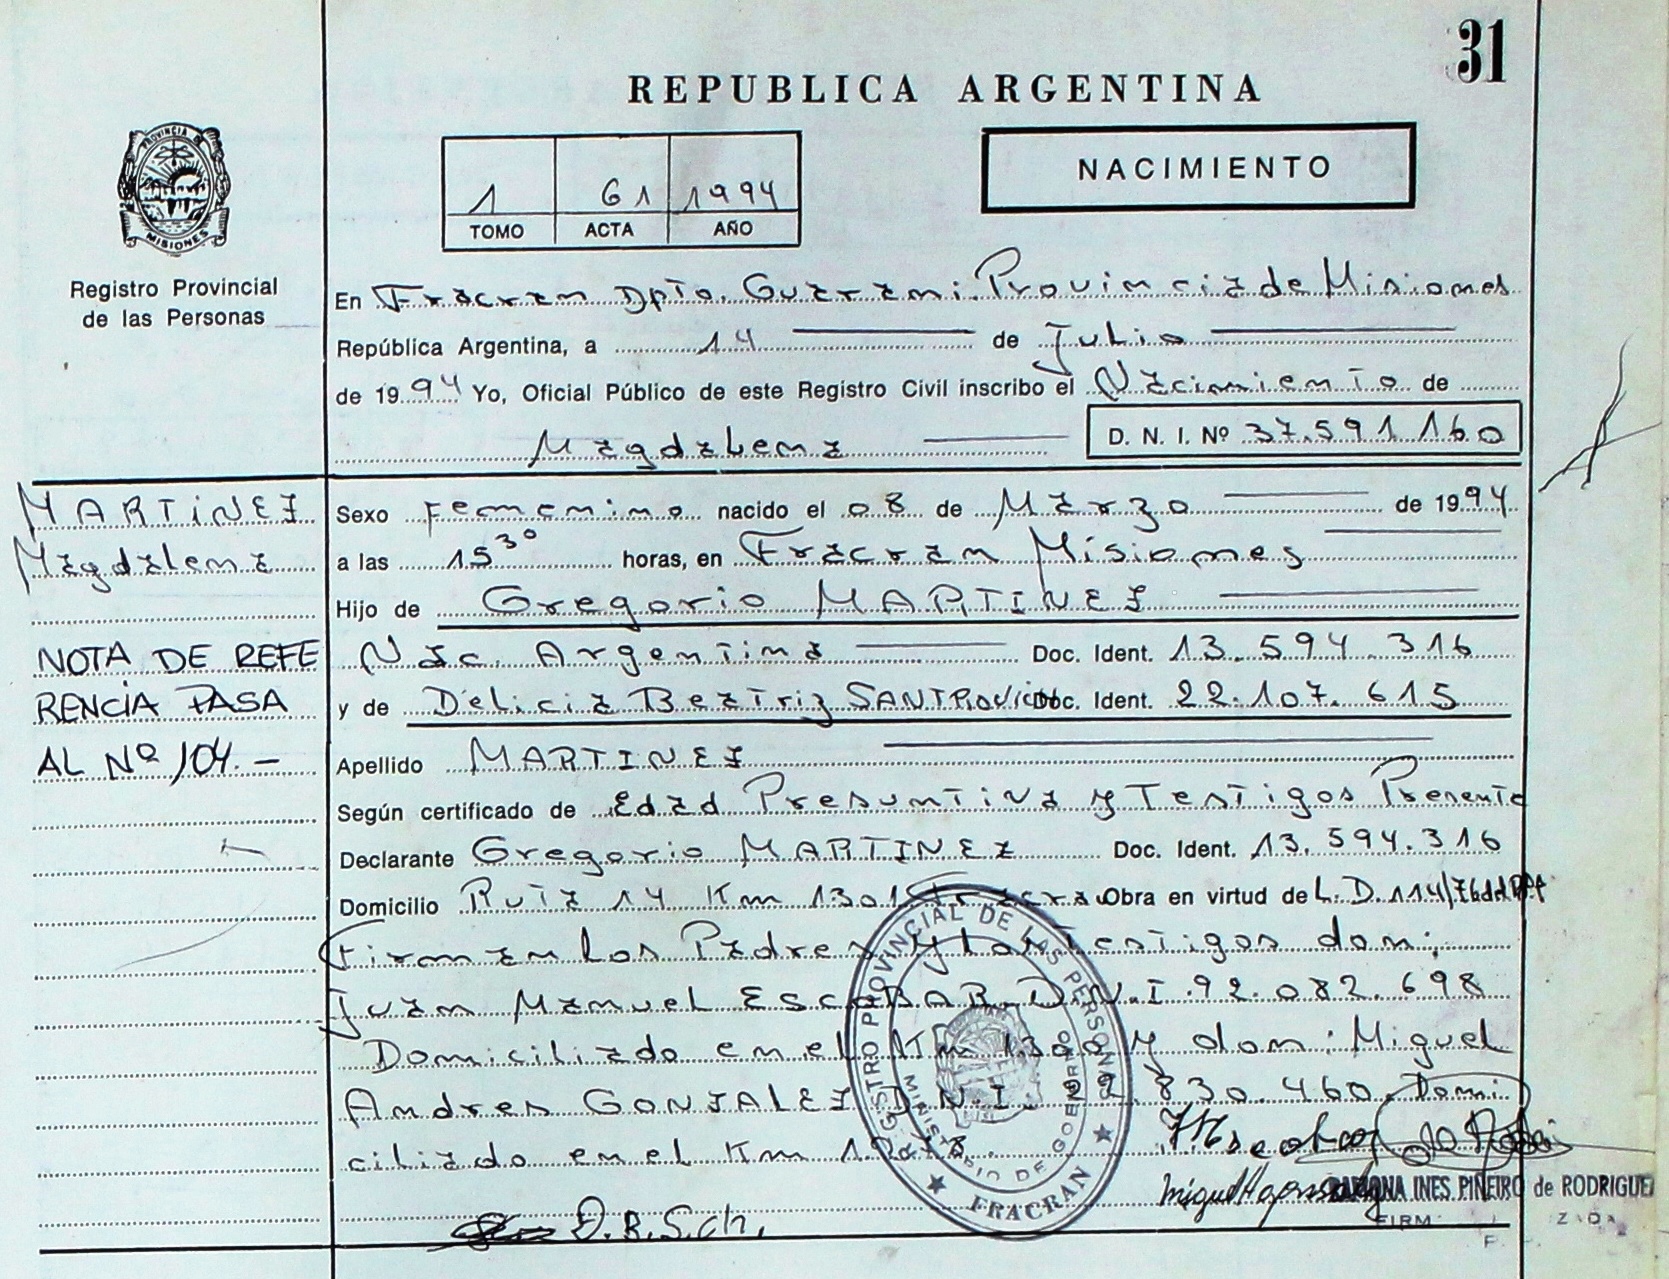 31
REPUBLICA ARGENTINA
NACIMIENTO
1 61 1994
TOMO ACTA AÑO
PROVINCIA DE
MISIONES
Registro Provincial
de las Personas
En Fracran Dpto. Guarani. Provincia de Misiones
República Argentina, a 14 de Julio
de 1994 Yo, Oficial Público de este Registro Civil inscribo el Nacimiento de
Magdalena D. N. I. Nº 37.591.160
MARTINEZ
Magdalena
NOTA DE REFE
RENCIA PASA
AL Nº 104.-
Sexo Femenino nacido el 08 de Marzo de 1994
a las 15 30 horas, en Fracran Misiones
Hijo de Gregorio MARTINEZ
Nac. Argentina Doc. Ident. 13.594.316
y de Delicia Beatriz Doc. Ident. 22.107.615
Apellido MARTINEZ
Según certificado de Edad Presuntiva y Testigos Presente
Declarante Gregorio MARTINEZ Doc. Ident. 13.594.316
Domicilio Ruta 14 Km Obra en virtud de L.D. 114/76
Firman Los Padres y Los Testigos don:
Juan Manuel EscoBAR D.N.I. 92.082.698
Domiciliado en el Km y don: Miguel
Andres GONZALEZ D.N.I. 830.460 Domi
ciliado en el Km
D.B.S.ch.
REGISTRO PROVINCIAL DE LAS PERSONAS
MINISTERIO DE GOBIERNO
FRACRAN
RAMONA INES PIÑEIRO de RODRIGUE